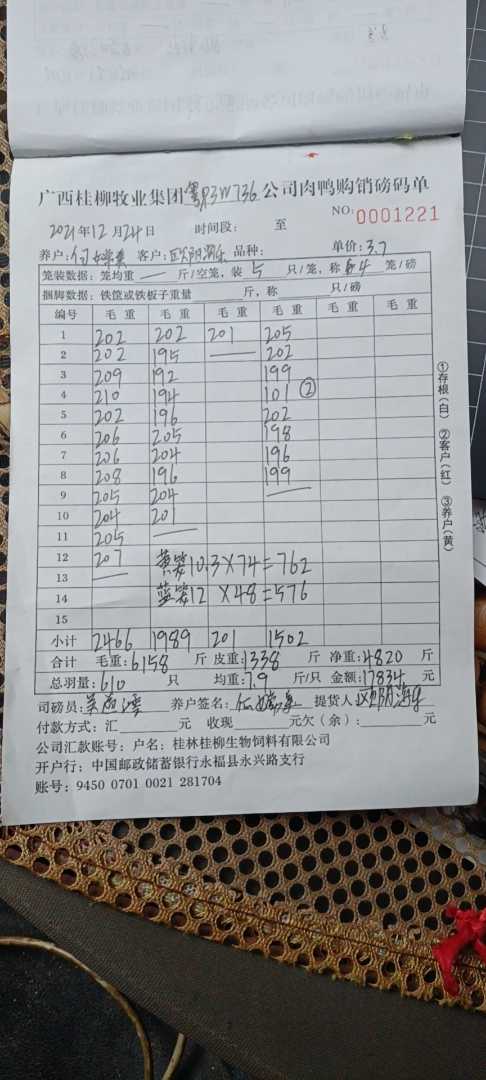 广西桂柳牧业集团粤R3W736公司肉鸭购销磅码单
2021年12月24日 时间段: 至 NO:0001221
养户: 客户:欧阳 乐 品种: 单价:3.7
笼装数据:笼均重 — 斤/空笼,装 5 只/笼,称 4 笼/磅
捆脚数据:铁筐或铁板子重量 斤,称 只/磅
编号 毛 重 毛 重 毛 重 毛 重 毛 重 毛 重
1 202 202 201 205
2 202 195 — 202
3 209 192 199
4 210 194 101 ②
5 202 196 202
6 206 205 198
7 206 204 196
8 208 196 199
9 205 204 —
10 204 201
11 205 —
12 207 黄笼10.3×74=762
13 —
14 蓝笼12×48=576
15
小计 2466 1989 201 1502
合计 毛重:6158 斤 皮重:1338 斤 净重:4820 斤
总羽量:610 只 均重:7.9 斤/只 金额:17834 元
司磅员: 养户签名: 提货人:欧阳 乐
付款方式:汇 元 收现 元欠(余): 元
公司汇款账号:户名:桂林桂柳生物饲料有限公司
开户行:中国邮政储蓄银行永福县永兴路支行
账号:9450 0701 0021 281704
①存根(白) ②客户(红) ③养户(黄)